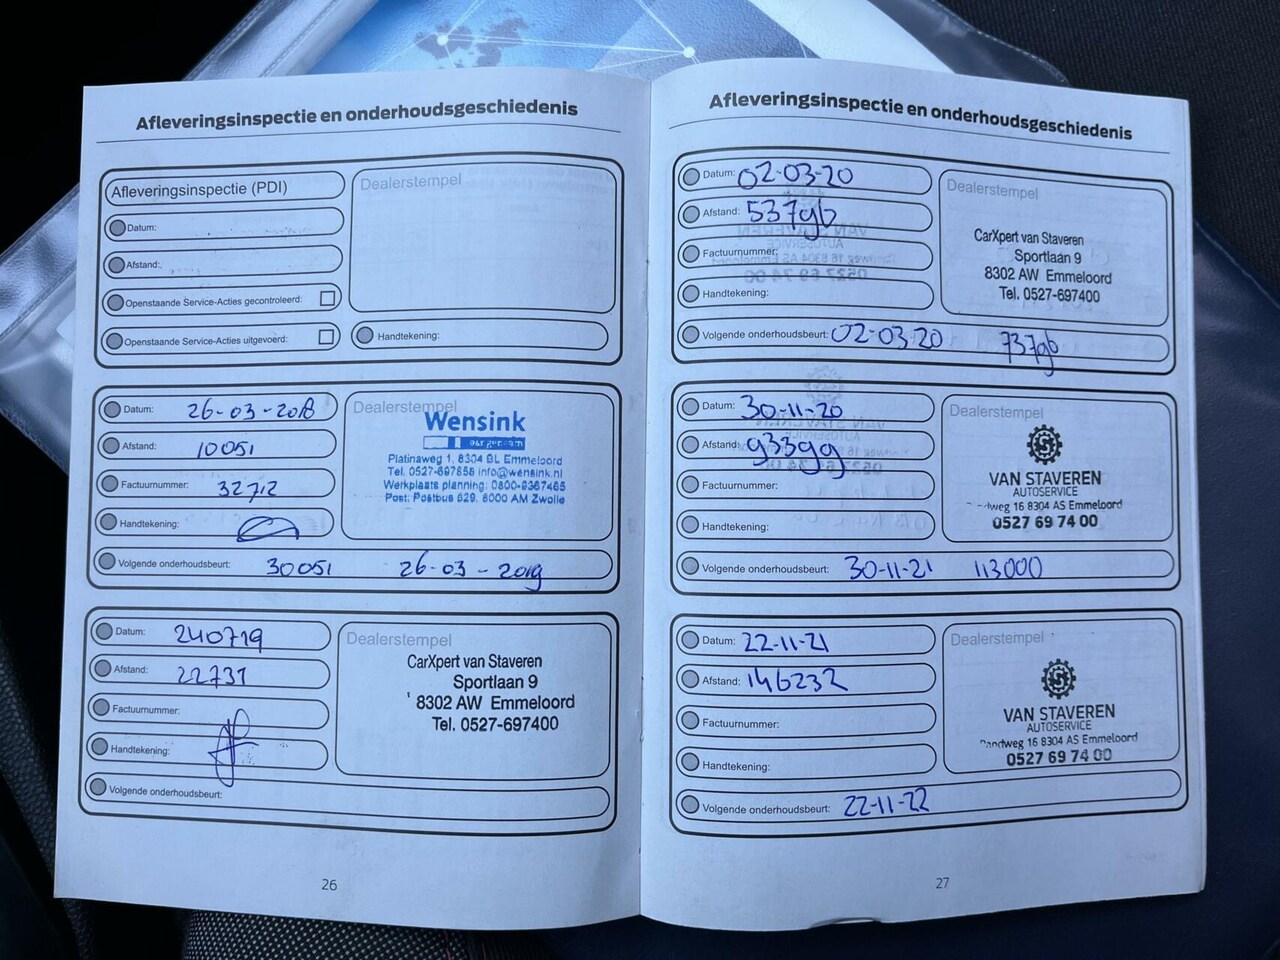 Afleveringsinspectie en onderhoudsgeschiedenis
Afleveringsinspectie (PDI)
Datum:
Afstand:
Openstaande Service-Acties gecontroleerd:
Openstaande Service-Acties uitgevoerd:
Dealerstempel
Handtekening:
Datum: 26-03-2018
Afstand: 10051
Factuurnummer: 32712
Handtekening:
Dealerstempel
Wensink
Platinaweg 1, 8304 BL Emmeloord
Tel. 0527-697858 info@wensink.nl
Werkplaats planning: 0800-9367465
Post: Postbus 629, 8000 AM Zwolle
Volgende onderhoudsbeurt: 30051 26-03-2019
Datum: 240719
Afstand: 22731
Factuurnummer:
Handtekening:
Dealerstempel
CarXpert van Staveren
Sportlaan 9
8302 AW Emmeloord
Tel. 0527-697400
Volgende onderhoudsbeurt:
26
Afleveringsinspectie en onderhoudsgeschiedenis
Datum: 02-03-20
Afstand: 53796
Factuurnummer:
Handtekening:
Dealerstempel
CarXpert van Staveren
Sportlaan 9
8302 AW Emmeloord
Tel. 0527-697400
Volgende onderhoudsbeurt: 02-03-20 73796
Datum: 30-11-20
Afstand: 93399
Factuurnummer:
Handtekening:
Dealerstempel
VAN STAVEREN
AUTOSERVICE
16 8304 AS Emmeloord
0527 69 74 00
Volgende onderhoudsbeurt: 30-11-21 113000
Datum: 22-11-21
Afstand: 146232
Factuurnummer:
Handtekening:
Dealerstempel
VAN STAVEREN
AUTOSERVICE
16 8304 AS Emmeloord
0527 69 74 00
Volgende onderhoudsbeurt: 22-11-22
27